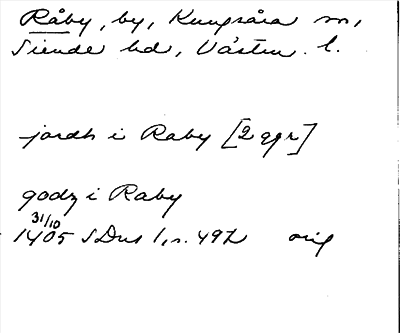 Råby, by, Kungsåra sn,
Siende hd, Västm. l.
jordh i Raby [2 ggr]
godz i Raby
31/10
1405 SDns 1, n. 492 orig